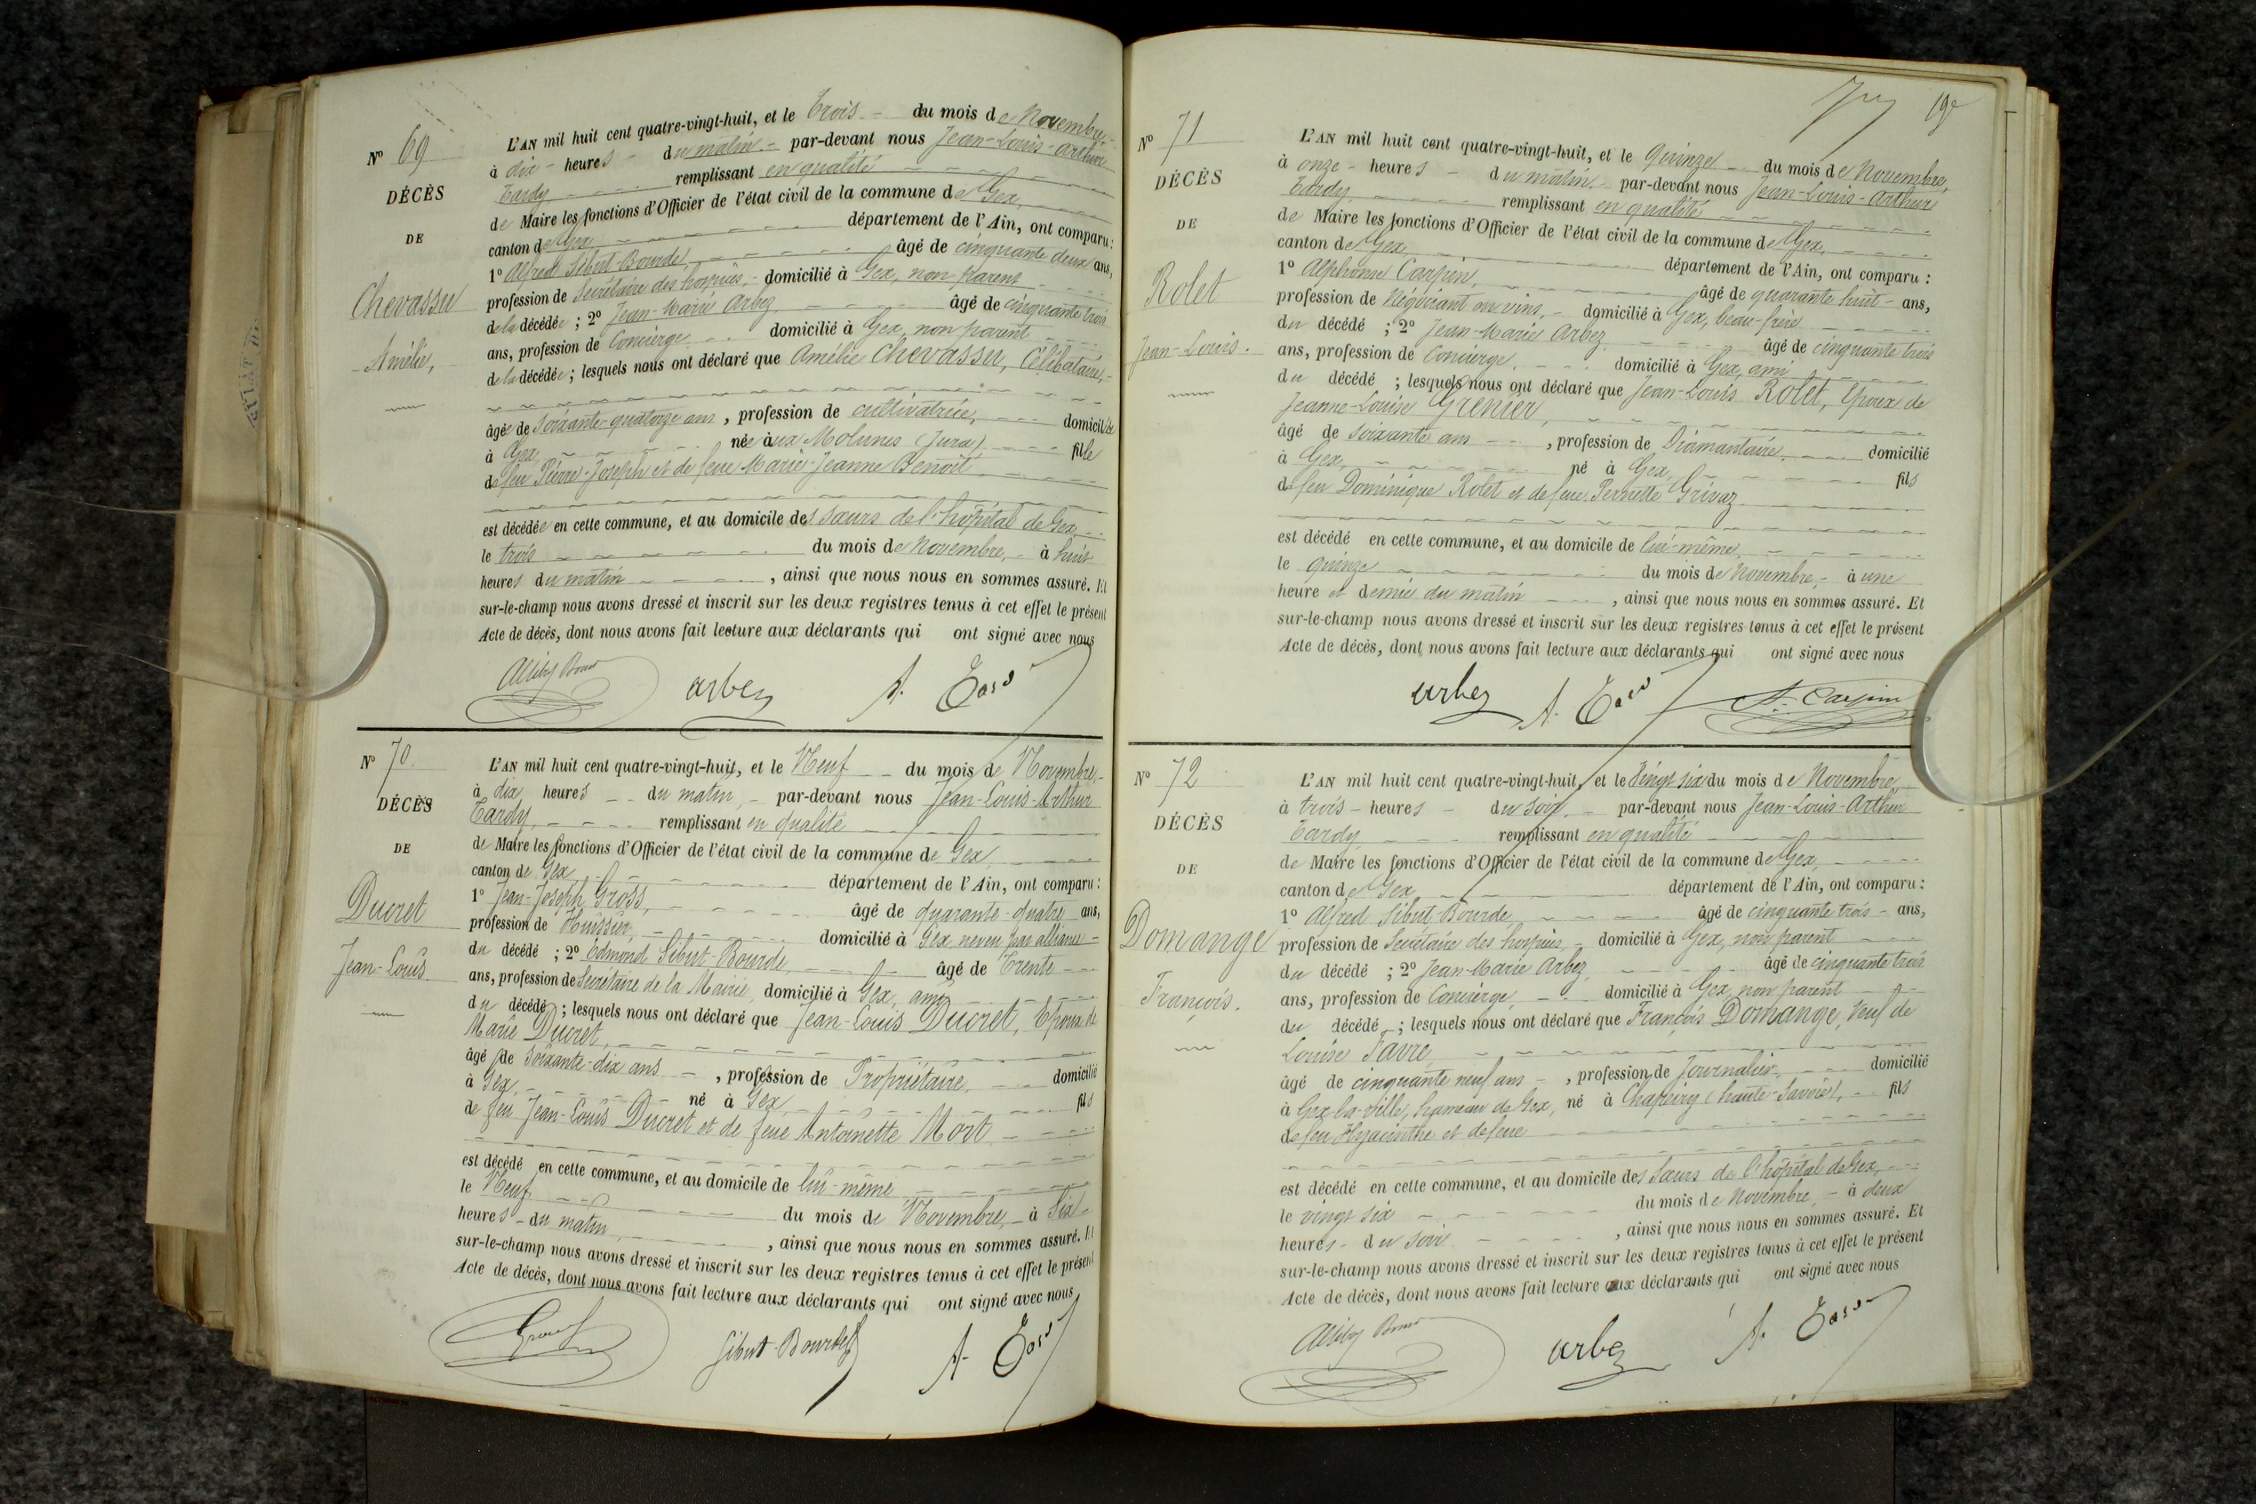 Nº 69
DÉCÈS
DE
Chevassu
Amélie,
L'AN mil huit cent quatre-vingt-huit, et le Trois du mois de Novembre,
à dix heures du matin par-devant nous Jean-Louis-Arthur
Tardy remplissant en qualité
de Maire les fonctions d'Officier de l'état civil de la commune de Gex,
canton de Gex, département de l'Ain, ont comparu :
1º Alfred Sibut-Bourde, âgé de cinquante deux ans,
profession de Secrétaire des hospices, domicilié à Gex, non parent
de la décédée ; 2º Jean-Marie Arbez, âgé de cinquante trois
ans, profession de Concierge domicilié à Gex, non parent
de la décédée ; lesquels nous ont déclaré que Amélie Chevassu, Célibataire,
âgée de soixante-quatorze ans, profession de cultivatrice, domiciliée
à Gex née aux Molunes (Jura) fille
de feu Pierre-Joseph et de feue Marie-Jeanne Benoit
est décédée en cette commune, et au domicile des sœurs de l'hôpital de Gex,
le trois du mois de Novembre, à huit
heures du matin, ainsi que nous nous en sommes assuré. Et
sur-le-champ nous avons dressé et inscrit sur les deux registres tenus à cet effet le présent
Acte de décès, dont nous avons fait lecture aux déclarants qui ont signé avec nous
arbez
Nº 70
DÉCÈS
DE
Ducret
Jean-Louis
L'AN mil huit cent quatre-vingt-huit, et le Neuf du mois de Novembre,
à dix heures du matin, par-devant nous Jean-Louis-Arthur
Tardy, remplissant en qualité
de Maire les fonctions d'Officier de l'état civil de la commune de Gex
canton de Gex, département de l'Ain, ont comparu :
1º Jean-Joseph Gross, âgé de quarante-quatre ans,
profession de Huissier, domicilié à Gex, neveu par alliance
du décédé ; 2º Edmond Sibut-Bourde, âgé de Trente
ans, profession de Secrétaire de la Mairie, domicilié à Gex, ami
du décédé ; lesquels nous ont déclaré que Jean-Louis Ducret, Epoux de
Marie Ducret,
âgé de soixante-dix ans, profession de Propriétaire, domicilié
à Gex né à Gex, fils
de feu Jean-Louis Ducret et de feue Antoinette Mort
est décédé en cette commune, et au domicile de lui-même
le Neuf du mois de Novembre, à Six
heures du matin, ainsi que nous nous en sommes assuré. Et
sur-le-champ nous avons dressé et inscrit sur les deux registres tenus à cet effet le présent
Acte de décès, dont nous avons fait lecture aux déclarants qui ont signé avec nous
Sibut-Bourde
Nº 71
DÉCÈS
DE
Rolet
Jean-Louis.
L'AN mil huit cent quatre-vingt-huit, et le Quinze du mois de Novembre,
à onze heures du matin, par-devant nous Jean-Louis-Arthur
Tardy, remplissant en qualité
de Maire les fonctions d'Officier de l'état civil de la commune de Gex,
canton de Gex, département de l'Ain, ont comparu :
1º Alphonse Carpin, âgé de quarante huit ans,
profession de Négociant en vins, domicilié à Gex, beau-frère
du décédé ; 2º Jean-Marie Arbez âgé de cinquante trois
ans, profession de Concierge, domicilié à Gex, ami
du décédé ; lesquels nous ont déclaré que Jean-Louis Rolet, Epoux de
Jeanne-Louise Grenier,
âgé de soixante ans, profession de Diamantaire, domicilié
à Gex, né à Gex, fils
de feu Dominique Rolet et de feue Pernette Grivaz
est décédé en cette commune, et au domicile de lui-même,
le quinze du mois de Novembre, à une
heure et demie du matin, ainsi que nous nous en sommes assuré. Et
sur-le-champ nous avons dressé et inscrit sur les deux registres tenus à cet effet le présent
Acte de décès, dont nous avons fait lecture aux déclarants qui ont signé avec nous
arbez A. Carpin
Nº 72
DÉCÈS
DE
Domange
François.
L'AN mil huit cent quatre-vingt-huit, et le Vingt six du mois de Novembre
à trois heures du soir, par-devant nous Jean-Louis-Arthur
Tardy remplissant en qualité
de Maire les fonctions d'Officier de l'état civil de la commune de Gex,
canton de Gex département de l'Ain, ont comparu :
1º Alfred Sibut-Bourde, âgé de cinquante trois ans,
profession de Secrétaire des hospices, domicilié à Gex, non parent
du décédé ; 2º Jean-Marie Arbez, âgé de cinquante trois
ans, profession de Concierge, domicilié à Gex, non parent
du décédé ; lesquels nous ont déclaré que François Domange, Veuf de
Louise Favre
âgé de cinquante neuf ans, profession de Journalier, domicilié
à Gex-la-ville, hameau de Gex, né à Chapeiry (haute-Savoie), fils
de feu Hyacinthe et de feue
est décédé en cette commune, et au domicile des Sœurs de l'hôpital de Gex,
le vingt six du mois de Novembre, à deux
heures du soir, ainsi que nous nous en sommes assuré. Et
sur-le-champ nous avons dressé et inscrit sur les deux registres tenus à cet effet le présent
Acte de décès, dont nous avons fait lecture aux déclarants qui ont signé avec nous
arbez